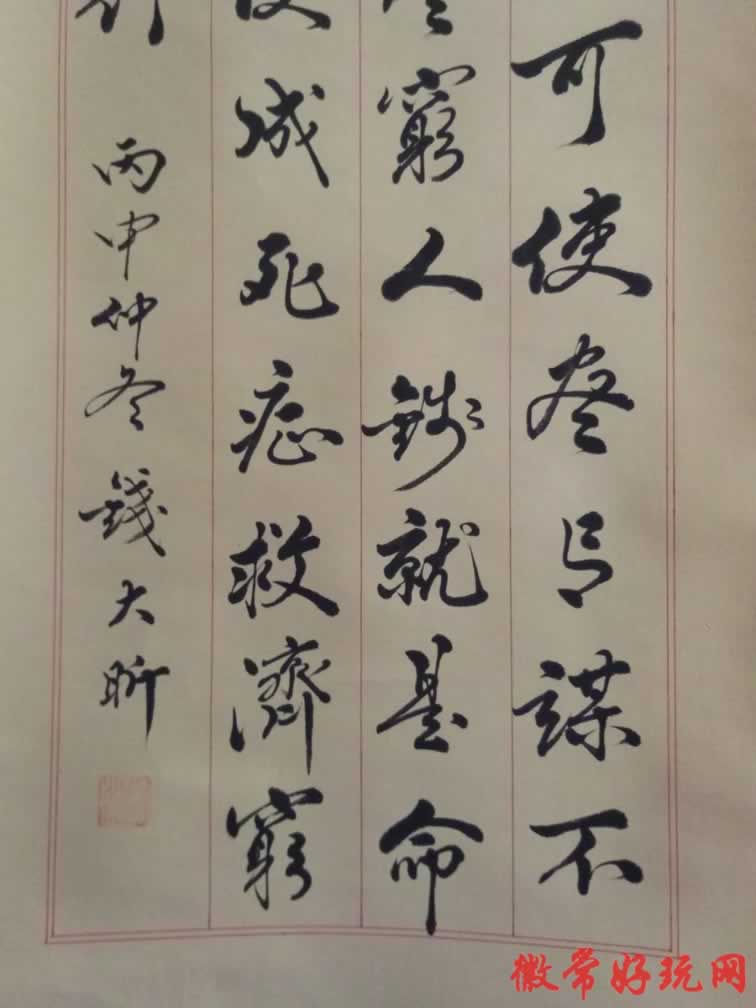 可使尽与謀不
窮人錢就是命
成死症救濟窮
丙申仲冬錢大昕
徽常好玩网